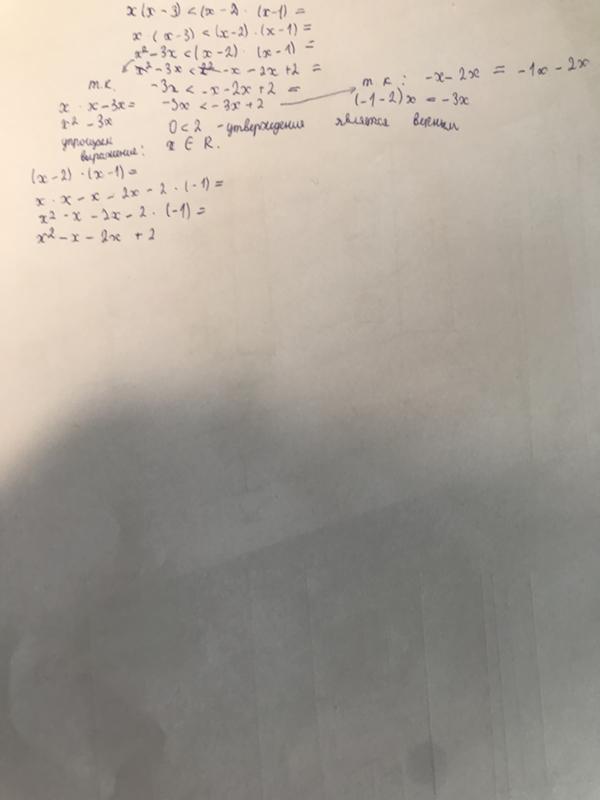 x(x-3) < (x-2) · (x-1) =
x · (x-3) < (x-2) · (x-1) =
x²-3x < (x-2) · (x-1) =
x²-3x < x² -x - 2x + 2 =
т.к. -3x < -x - 2x + 2 =
т к : -x - 2x = -1x - 2x
x · x - 3x = -3x < -3x + 2
(-1-2)x = -3x
x² - 3x
0 < 2 - утверждение является верным
упрощаем
выражение: x ∈ R.
(x-2) · (x-1) =
x · x - x - 2x - 2 · (-1) =
x² - x - 2x - 2 · (-1) =
x² - x - 2x + 2